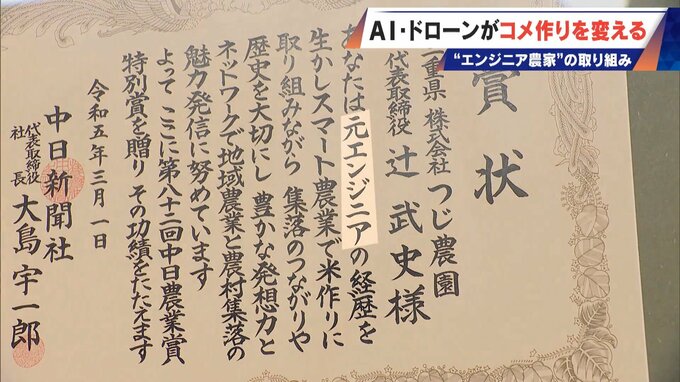 AI・ドローンがコメ作りを変える
“エンジニア農家”の取り組み
賞状
三重県 株式会社 つじ農園
代表取締役 辻 武史様
あなたは元エンジニアの経歴を
生かしスマート農業で米作りに
取り組みながら 集落のつながりや
歴史を大切にし 豊かな発想力と
ネットワークで地域農業と農村集落の
魅力発信に努めています
よって ここに第八十二回中日農業賞
特別賞を贈り その功績をたたえます
令和五年三月一日
中日新聞社
代表取締役社長 大島宇一郎